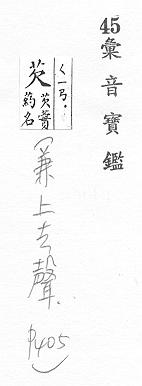 45 彙音寶鑑
ㄑ一ㄢ
芡
芡實
葯名
(兼上去聲.
P405)